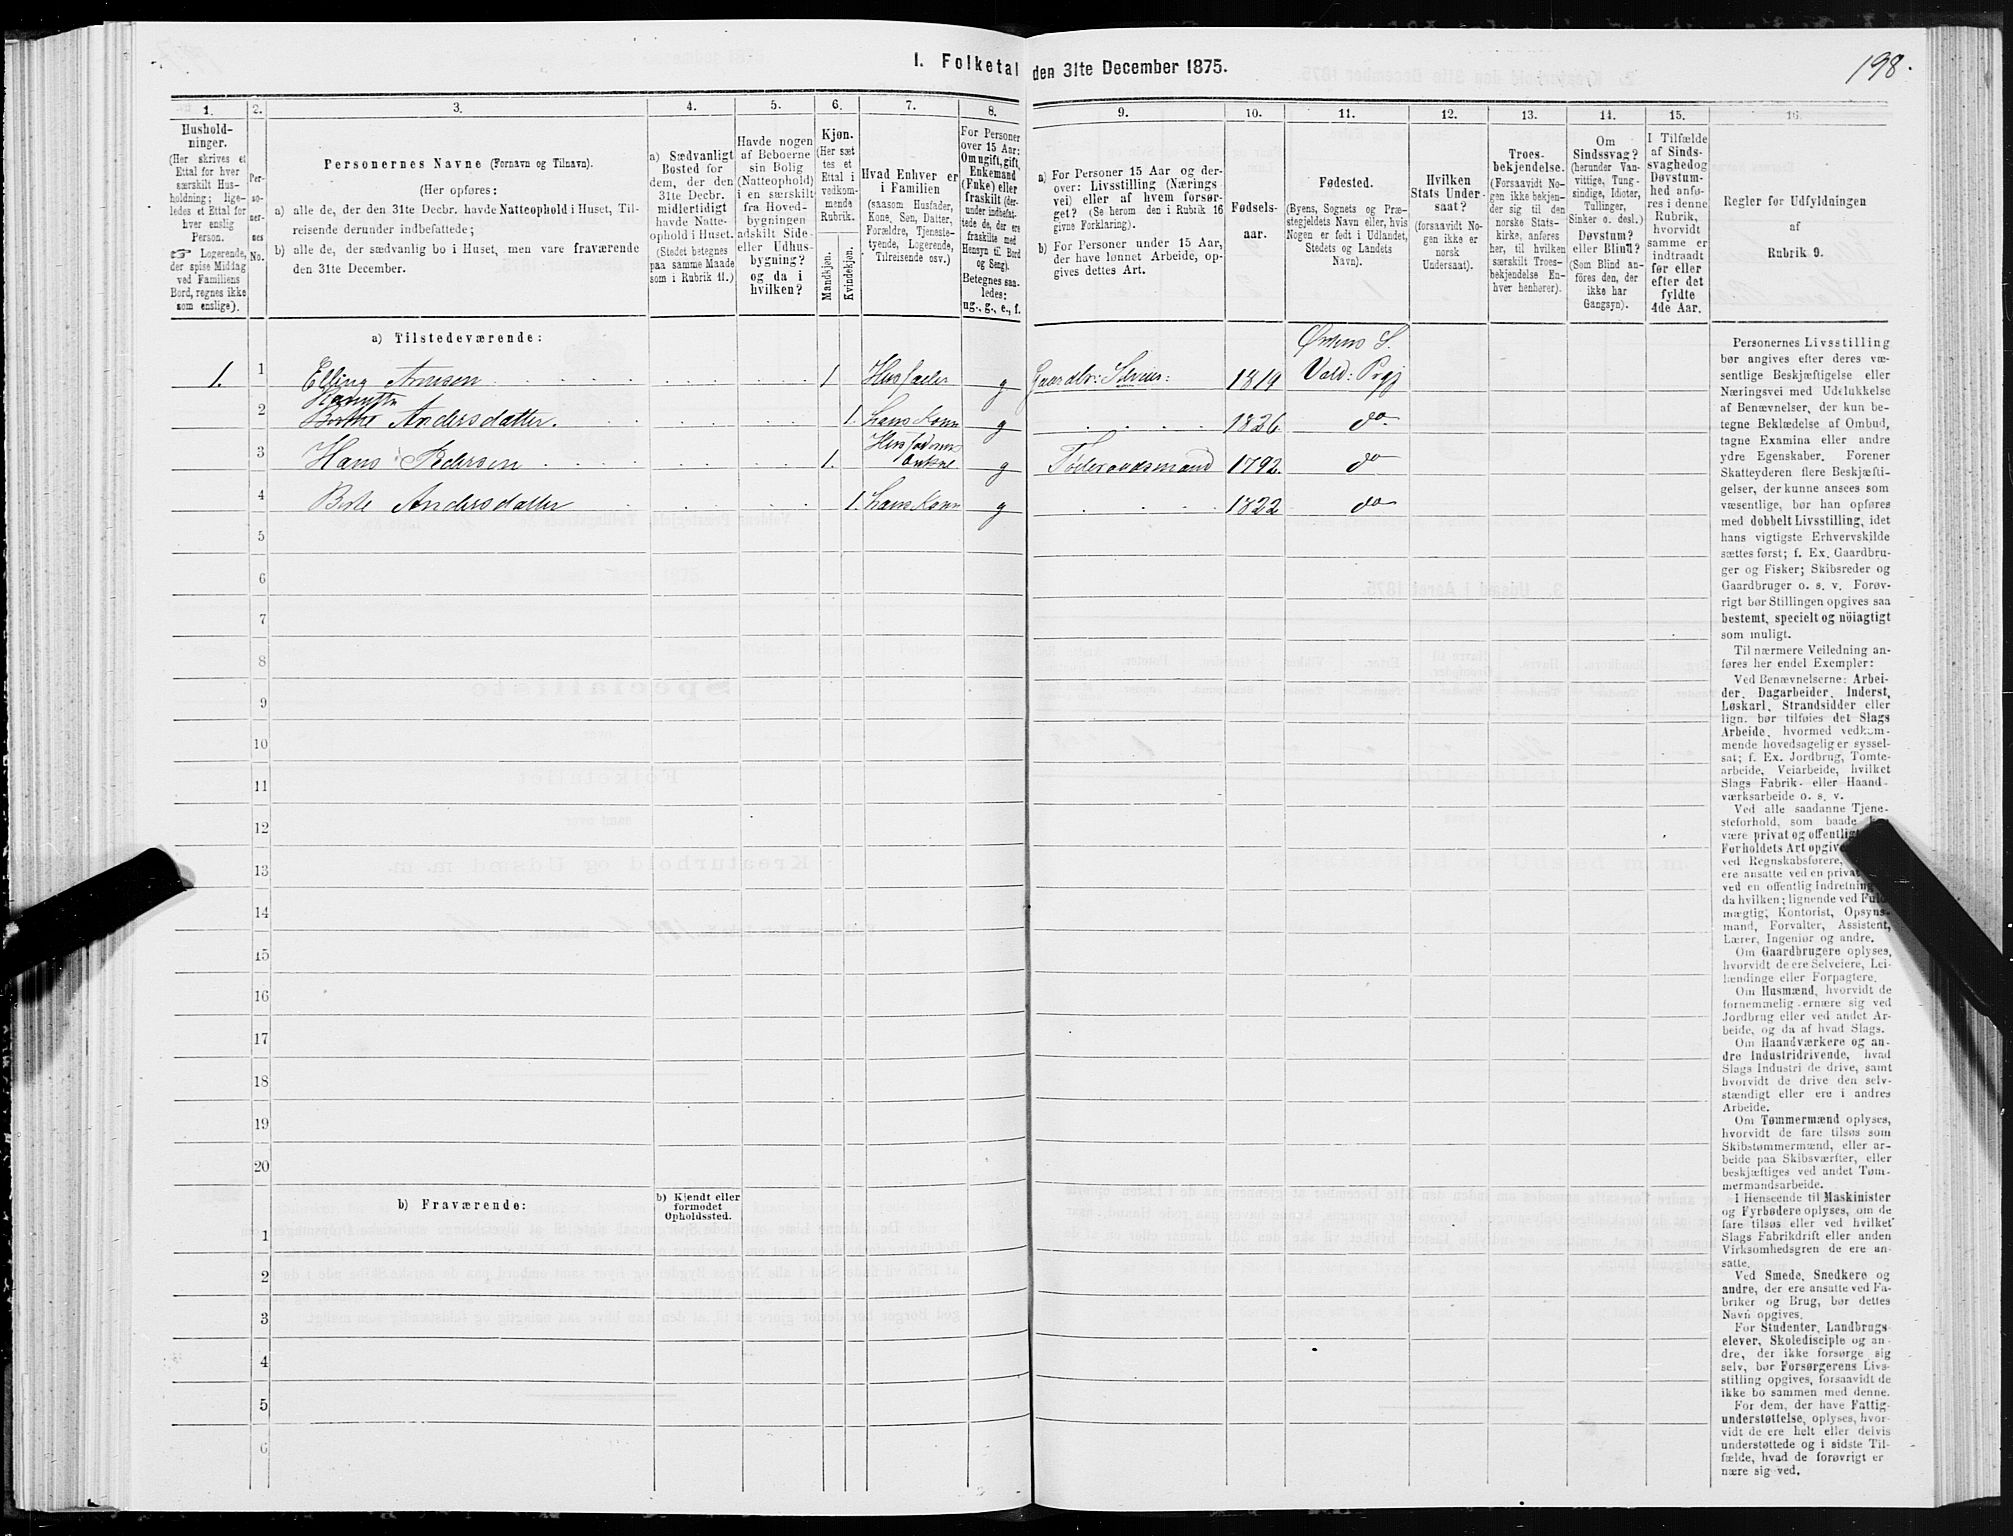 I. Folketal den 31te December 1875.
198.
1.
2.
3.
4.
5.
6.
7.
8.
9.
10.
11.
12.
13.
14.
15.
16.
Hushold-
ninger.
(Her skrives et
Ettal for hver
særskilt Hus-
holdning; lige-
ledes et Ettal for
hver enslig
Person.
☞ Logerende,
der spise Middag
ved Familiens
Bord, regnes ikke
som enslige).
Per-
so-
ner-
nes
No.
Personernes Navne (Fornavn og Tilnavn).
(Her opføres:
a) alle de, der den 31te Decbr. havde Natteophold i Huset, Til-
reisende derunder indbefattede;
b) alle de, der sædvanlig bo i Huset, men vare fraværende
den 31te December.
a) Sædvanligt
Bosted for
dem, der den
31te Decbr.
midlertidigt
havde Natte-
ophold i Huset.
(Stedet betegnes
paa samme Maade
som i Rubrik 11.)
Havde nogen
af Beboerne
sin Bolig
(Natteophold)
i en særskilt
fra Hoved-
bygningen
adskilt Side-
eller Udhus-
bygning?
og da i
hvilken?
Kjøn.
(Her sæt-
tes et
Ettal i
vedkom-
mende
Rubrik.
Mandkjøn.
Kvindekjøn.
Hvad Enhver er
i Familien
(saasom Husfader,
Kone, Søn, Datter,
Forældre, Tjeneste-
tyende, Logerende,
Tilreisende osv.)
For Personer
over 15 Aar:
Om ugift, gift,
Enkemand
(Enke) eller
fraskilt (der-
under indbefat-
tede de, der ere
fraskilte med
Hensyn til Bord
og Seng).
Betegnes saa-
ledes:
ug., g., e., f.
a) For Personer 15 Aar og der-
over: Livsstilling (Nærings-
vei) eller af hvem forsør-
get? (Se herom den i Rubrik 16
givne Forklaring).
b) For Personer under 15 Aar,
der have lønnet Arbeide, op-
gives dettes Art.
Fødsels-
aar.
Fødested.
(Byens, Sognets og Præ-
stegjeldets Navn eller, hvis
Nogen er født i Udlandet,
Stedets og Landets
Navn).
Hvilken
Stats Under-
saat?
(forsaavidt No-
gen ikke er
norsk
Undersaat).
Troes-
bekjendelse.
(Forsaavidt No-
gen ikke bekjen-
der sig til den
norske Stats-
kirke, anføres
her, til hvilken
særskilt Troes-
bekjendelse En-
hver henhører).
Om
Sindssvag?
(herunder Van-
vittige, Tung-
sindige, Idioter,
Tullinger,
Sinker o. desl.)
Døvstum?
eller Blind?
(Som Blind an-
føres den, der
ikke har
Gangsyn).
I Tilfælde
af Sinds-
svaghed og
Døvstum-
hed anfø-
res i denne
Rubrik,
hvorvidt
samme er
indtraadt
før eller
efter det
fyldte
4de Aar.
Regler for Udfyldningen
af
Rubrik 9.
a) Tilstedeværende:
1. 1 Elling Arnesen 1 Husfader g Gaardbr: Selveier: 1819 Østens S. Vald: Prgj
2 Andersdatter. 1. hans Kone g 1836 do
3 Hans Pedersen 1. g Føderaadsmand 1792 do
4 Berte Andersdatter 1. hans Kone g 1822 do
5
6
7
8
9
10
11
12
13
14
15
16
17
18
19
20
b) Fraværende:
b) Kjendt eller
formodet
Opholdssted.
1
2
3
4
5
6
Personernes Livsstilling
bør angives efter deres væ-
sentlige Beskjæftigelse eller
Næringsvei med Udelukkelse
af Benævnelser, der kun be-
tegne Beklædelse af Ombud,
tagne Examina eller andre
ydre Egenskaber. Forener
Skatteyderen flere Beskjæfti-
gelser, der kunne ansees som
væsentlige, bør han opføres
med dobbelt Livsstilling, idet
hans vigtigste Erhvervskilde
sættes først; f. Ex. Gaardbru-
ger og Fisker; Skibsreder og
Gaardbruger o. s. v. Forøv-
rigt bør Stillingen opgives saa
bestemt, specielt og nöiagtigt
som muligt.
Til nærmere Veiledning an-
føres her endel Exempler:
Ved Benævnelserne: Arbei-
der, Dagarbeider, Inderst,
Løskarl, Strandsidder eller
lign. bør tilføies det Slags
Arbeide, hvormed vedkom-
mende hovedsagelig er syssel-
sat; f. Ex. Jordbrug, Tomte-
arbeide, Veiarbeide, hvilket
Slags Fabrik- eller Haand-
værksarbeide o. s. v.
Ved alle saadanne Tjene-
steforhold, som baade
være privat og offentligt
Forholdets Art opgiv
ved Regnskabsførere,
ere ansatte ved en privat
ved en offentlig Indretning
da hvilken; lignende ved Fuld-
mægtig, Kontorist, Opsyns-
mand, Forvalter, Assistent,
Lærer, Ingeniør og andre.
Om Gaardbrugere oplyses,
hvorvidt de ere Selveiere, Lei-
lændinge eller Forpagtere.
Om Husmænd, hvorvidt de
fornemmelig ernære sig ved
Jordbrug eller ved andet Ar-
beide, og da af hvad Slags.
Om Haandværkere og an-
dre Industridrivende, hvad
Slags Industri de drive, samt
hvorvidt de drive den selv-
stændigt eller ere i andres
Arbeide.
Om Tømmermænd oplyses,
hvorvidt de fare tilsøs som
Skibstømmermænd, eller ar-
beide paa Skibsværfter, eller
beskjæftiges ved andet Tøm-
mermandsarbeide.
I Henseende til Maskinister
og Fyrbødere oplyses, om de
fare tilsøs eller ved hvilket
Slags Fabrikdrift eller anden
Virksomhedsgren de ere an-
satte.
Ved Smede, Snedkere og
andre, der ere ansatte ved Fa-
briker og Brug, bør dettes
Navn opgives.
For Studenter, Landbrugs-
elever, Skoledisciple og an-
dre, der ikke forsørge sig
selv, bør Forsørgerens Livs-
stilling opgives, forsaavidt de
ikke bo sammen med denne.
For dem, der have Fattig-
understøttelse, oplyses, hvor-
vidt de ere helt eller delvis
understøttede og i sidste Til-
fælde, hvad de forøvrigt er-
nære sig ved.